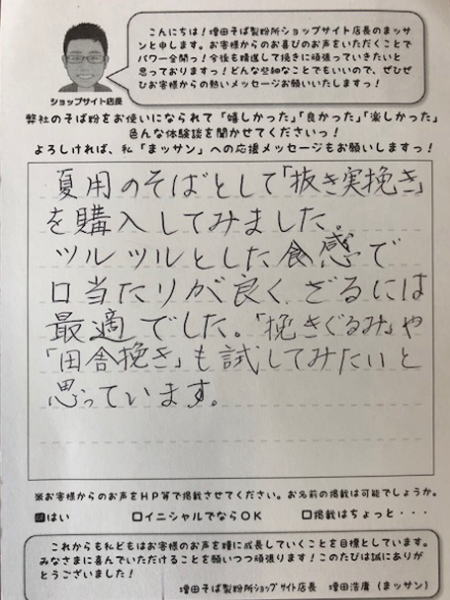 こんにちは！増田そば製粉所ショップサイト店長のまッサ
ンと申します。お客様からのお喜びのお声をいただくことで
パワー全開っ！今後も精進して挽きに頑張っていきたいと
思っておりますっ！どんな些細なことでもいいので、ぜひぜ
ひお客様からの熱いメッセージお願いいたしますっ！
ショップサイト店長
弊社のそば粉をお使いになられて「嬉しかった」「良かった」「楽しかった」
色んな体験談を聞かせてくださいっ！
よろしければ、私「まッサン」への応援メッセージもお願いしますっ！
夏用のそばとして「抜き実挽き」
を購入してみました。
ツルツルとした食感で
口当たりが良く、ざるには
最適でした。「挽きぐるみ」や
「田舎挽き」も試してみたいと
思っています。
※お客様からのお声をHP等で掲載させてください。お名前の掲載は可能でしょうか。
☑はい　□イニシャルでならOK　□掲載はちょっと・・・
これからも私どもはお客様のお声を糧に成長していくことを目標としています。
みなさまに喜んでいただけることを願いつつ頑張ります！このたびは誠にありが
とうございました！
増田そば製粉所ショップサイト店長　増田浩庸（まッサン）